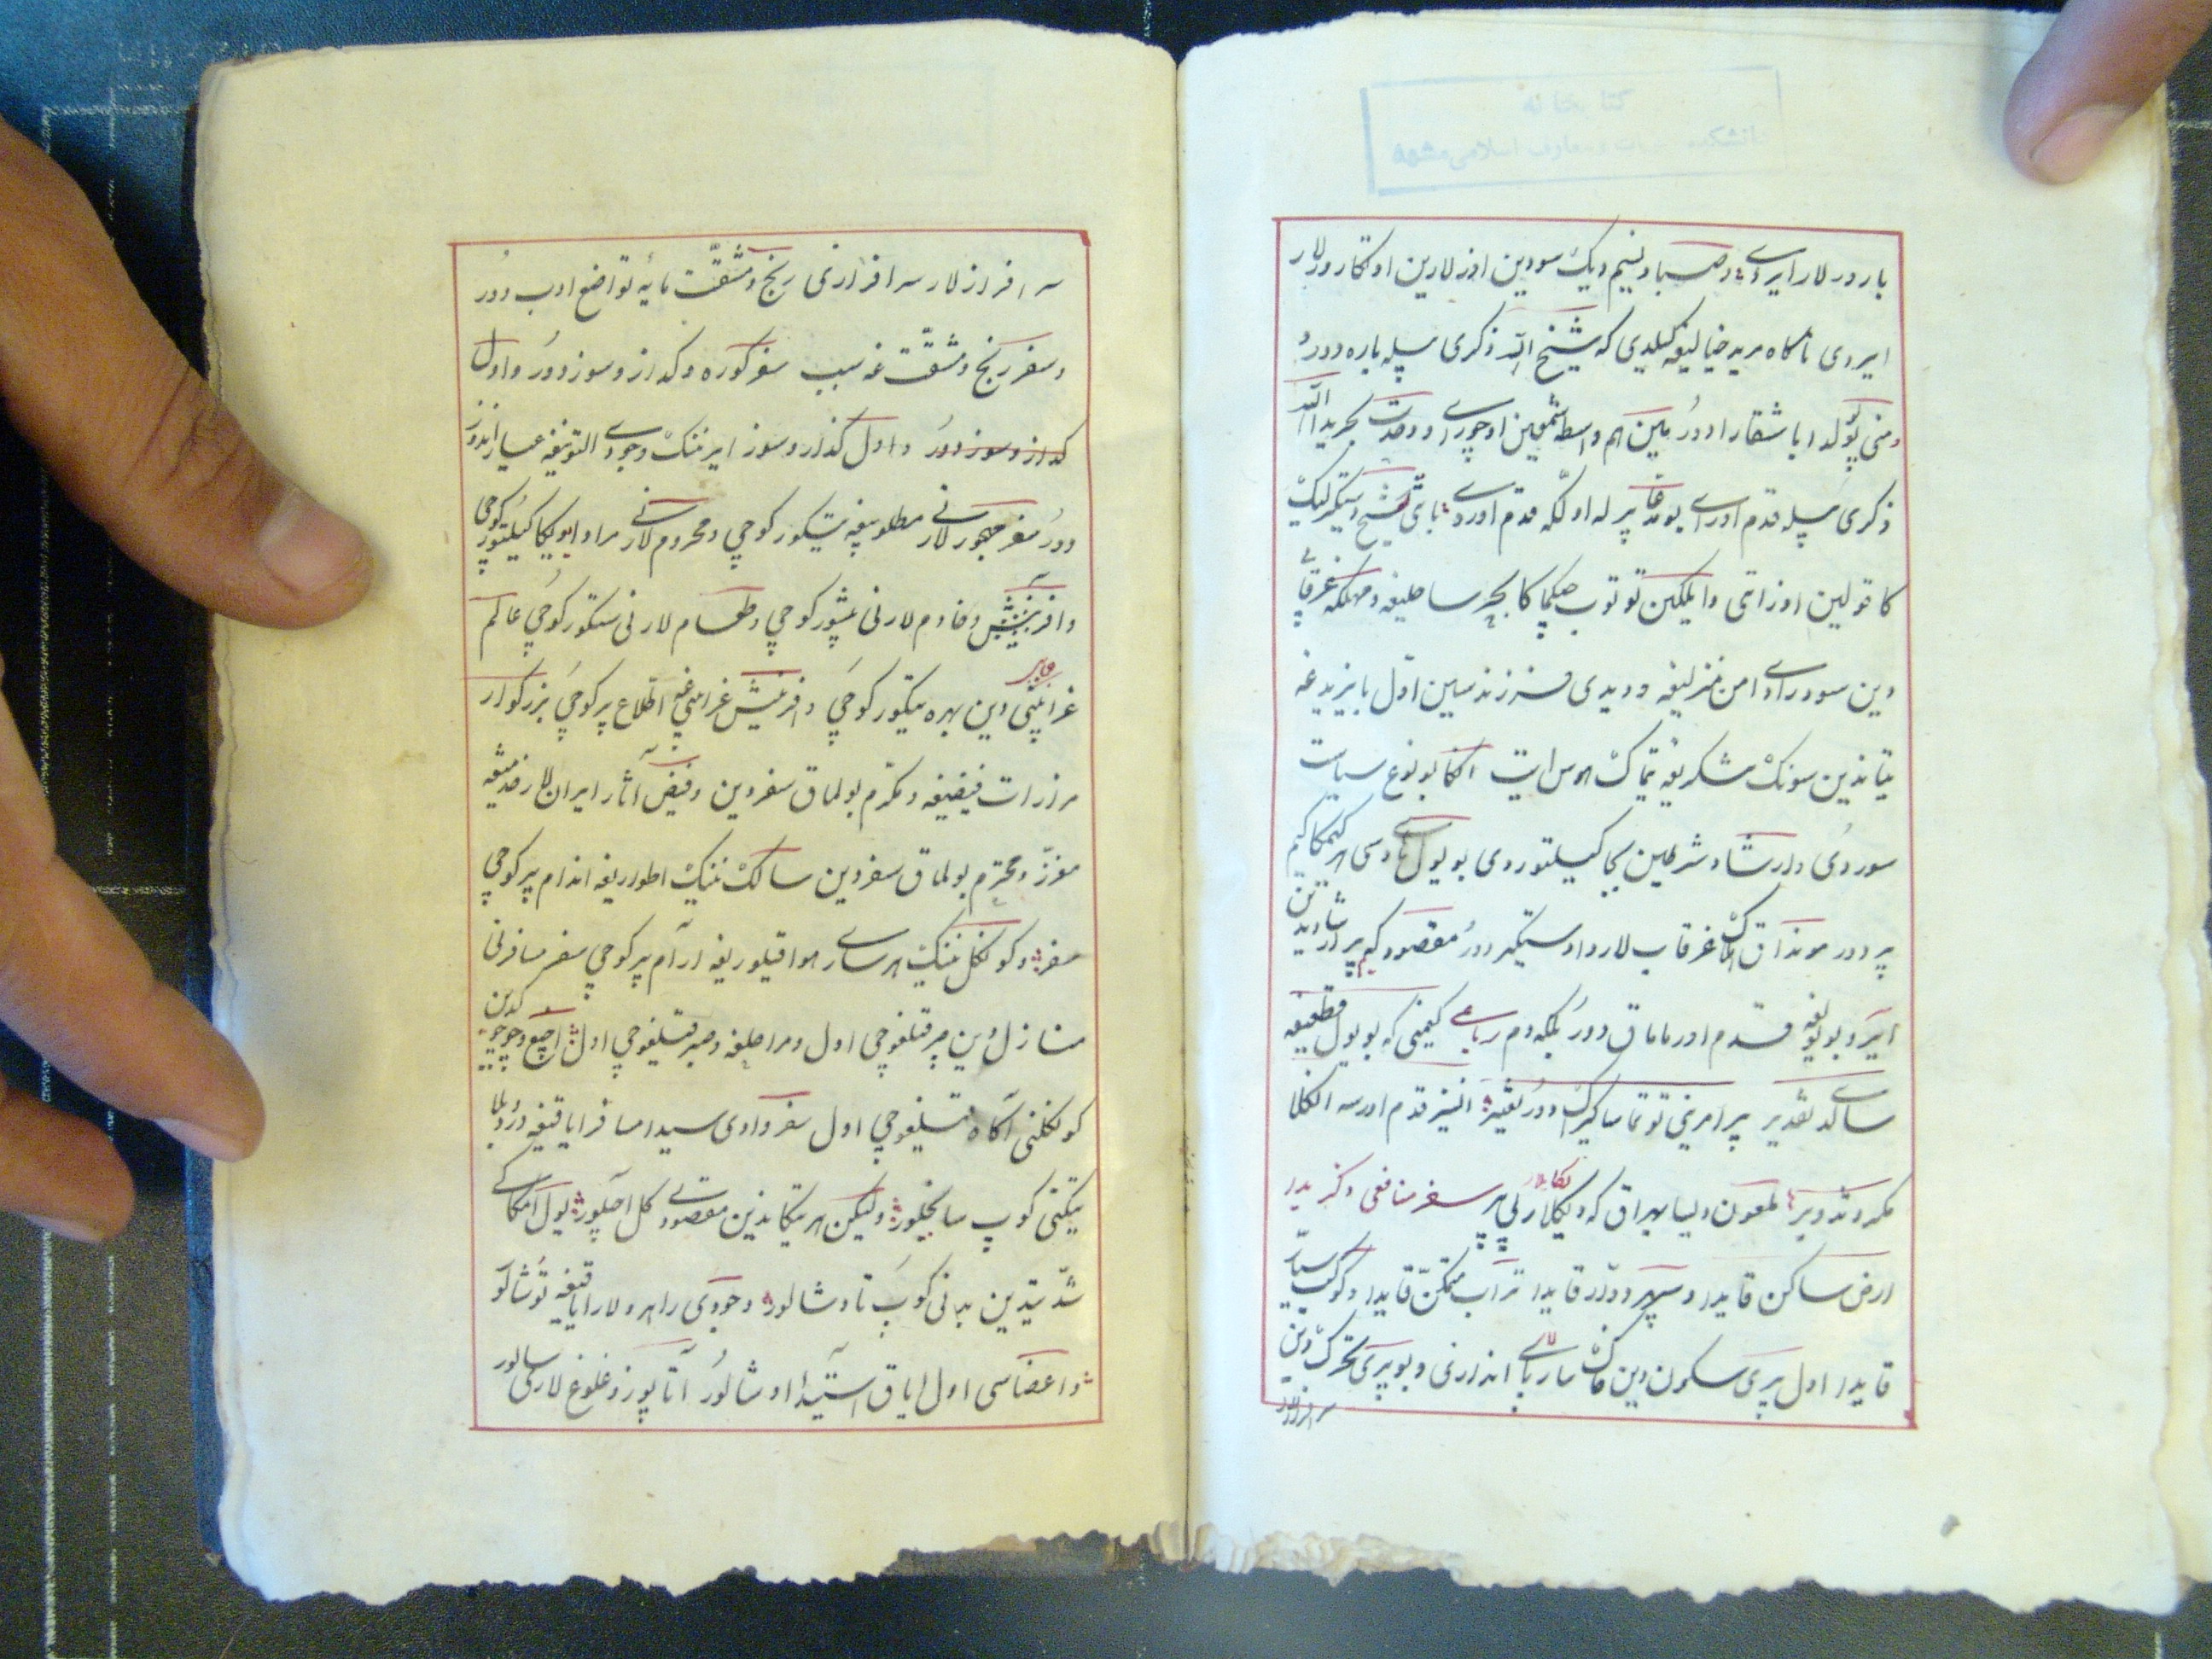 کتابخانه
معارف اسلامی مشهد
بارورلار ایردی و صبا و نسیم دیک سودین اوزلارین اوتکارورلار
ایردی ناکاه مرید خیالیغه کیلدی که شیخ الله ذکری بیله باره دور و
منی بو یولدا باشقارادور مین هم واسطه نی اوچورای و وحدت بحریدا الله
ذکری بیله قدم اورای بو مدعا بیرله اول که قدم اوردی باتتی شیخ دستکیرلیک
کا قولین اوزاتتی و ایلکین توتوب چیکماکا بحر ساحلیغه و مهلکه غرقابی
دین سودرادی امن منزلیغه و دیدی فرزند سین اول بایزیدغه
یتانذین سونک تنکریغه یتماک هوس ایت انکا بو نوع سیاست
سوردی و ارشاد شرطین بجا کیلتوردی بو یول هادی سی هر کیمکا کیم
پیر دور مونداق غرقاب لاردا دستکیر دور مقصود کیم پیر ارشادیدین
ایرو بو یولغه قدم اورماماق دور بلکه دم رباعی کیمنی که بو یول قطعیغه
سالدی تقدیر پیر امرینی توتماسا کیراک دور تغییر انسیز قدم اورسه انکلا
مکر و تذویر ملعون دلیسا یهراق که دیکایلار بی پیر سفر منافعی ذکریدا
ارض ساکن قایدا و سپهر دوار قایدا تراب متمکن قایدا و کوکب سیار
قایدا اول بیری سکون دین خاکسارلار پااندازی و بو بیری تحرک دین
سرافرازلار
سرافرازلار سرافرازی رنج و مشقت مایه تواضع ادب دور
و سفر رنج و مشقت غه سبب سفر کوره و کداز و سوز دور و اول
کداز و سوز دور و اول کداز و سوز ایرننک وجودی التونیغه عیار اندوز
دور سفر مهجورلارنی مطلوبیغه یتکورکوچی و محروم لارنی مرادی ایویکا کیلتورکوچی
و خام لارنی پیشورکوچی و طعام لارنی سنکورکوچی عالم
عجایبی
غرایبی دین بهره یتکورکوچی و آفرینش غرایبی غه اطلاع بیرکوچی بزرکوار
مزارات فیضیغه مکرم بولماق سفردین و فیض آثار ایرانلار خدمتیغه
معزز و محترم بولماق سفردین سالک ننک اطواریغه اندام بیرکوچی
سفر و کونکل ننک هر ساری هوا قیلوریغه آرام بیرکوچی سفر مسافرنی
منازل دین خبر قیلغوچی اول و مراحلغه رهبر قیلغوچی اول آچیغ و چوچوکدین
کونکلنی آکاه قیلغوچی اول سفر وادی سیدا مسافر ایاقیغه
یتکنی کوپ سانجیلور و لیکن هر تیکاندین مقصودی کلی آچیلور یول امکاکی
شدتیدین بدنی کوپ تاوشالور و وجودی راهرولار ایاقیغه توشالور
و اعضاسی اول ایاق آستیدا اوشالور آتا یوز و غلوغ لارنی سالور